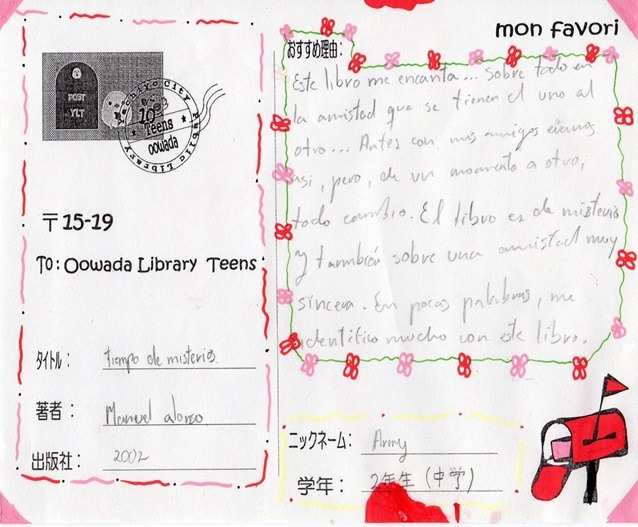 mon favori
POST
YLT
Yachiyo City Public Library
10
Teens
oowada
〒15-19
To: Oowada Library Teens
タイトル: tiempo de misterio
著者: Manuel alonso
出版社: 2002
おすすめ理由:
Este libro me encanta... sobre todo en
la amistad que se tienen el uno al
otro... Antes con mis amigos eramos
asi, pero, de un momento a otro,
todo cambio. El libro es de misterio
y también sobre una amistad muy
sincera. En pocas palabras, me
identifico mucho con este libro.
ニックネーム: Army
学年: 2年生 (中学)